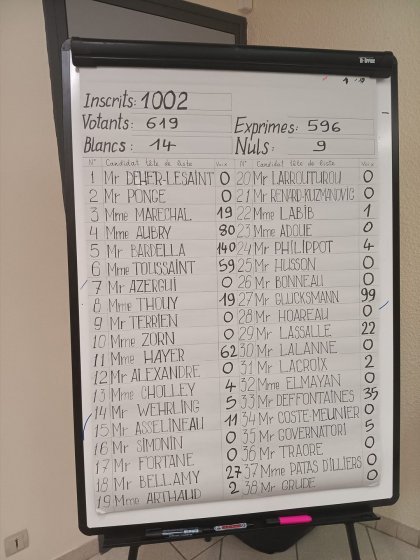 Inscrits: 1002
Votants: 619 Exprimes: 596
Blancs: 14 Nuls: 9
N° Candidat tête de liste Voix N° Candidat tête de liste Voix
1 Mr DEHER-LESAINT 0 20 Mr LARROUTUROU 0
2 Mr PONGE 0 21 Mr RENARD-KUZMANOVIC 0
3 Mme MARECHAL 19 22 Mme LABIB 1
4 Mme AUBRY 80 23 Mme ADOUE 0
5 Mr BARDELLA 140 24 Mr PHILIPPOT 4
6 Mme TOUSSAINT 59 25 Mr HUSSON 0
7 Mr AZERGUI 0 26 Mr BONNEAU 0
8 Mme THOUY 19 27 Mr GLUCKSMANN 99
9 Mr TERRIEN 0 28 Mr HOAREAU 0
10 Mme ZORN 0 29 Mr LASSALLE 22
11 Mme HAYER 62 30 Mr LALANNE 0
12 Mr ALEXANDRE 0 31 Mr LACROIX 2
13 Mme CHOLLEY 4 32 Mme ELMAYAN 0
14 Mr WEHRLING 5 33 Mr DEFFONTAINES 35
15 Mr ASSELINEAU 11 34 Mr COSTE-MEUNIER 0
16 Mr SIMONIN 0 35 Mr GOVERNATORI 5
17 Mr FORTANE 0 36 Mr TRAORE 0
18 Mr BELLAMY 27 37 Mme PATAS D'ILLIERS 0
19 Mme ARTHAUD 2 38 Mr GRUDE 0
1